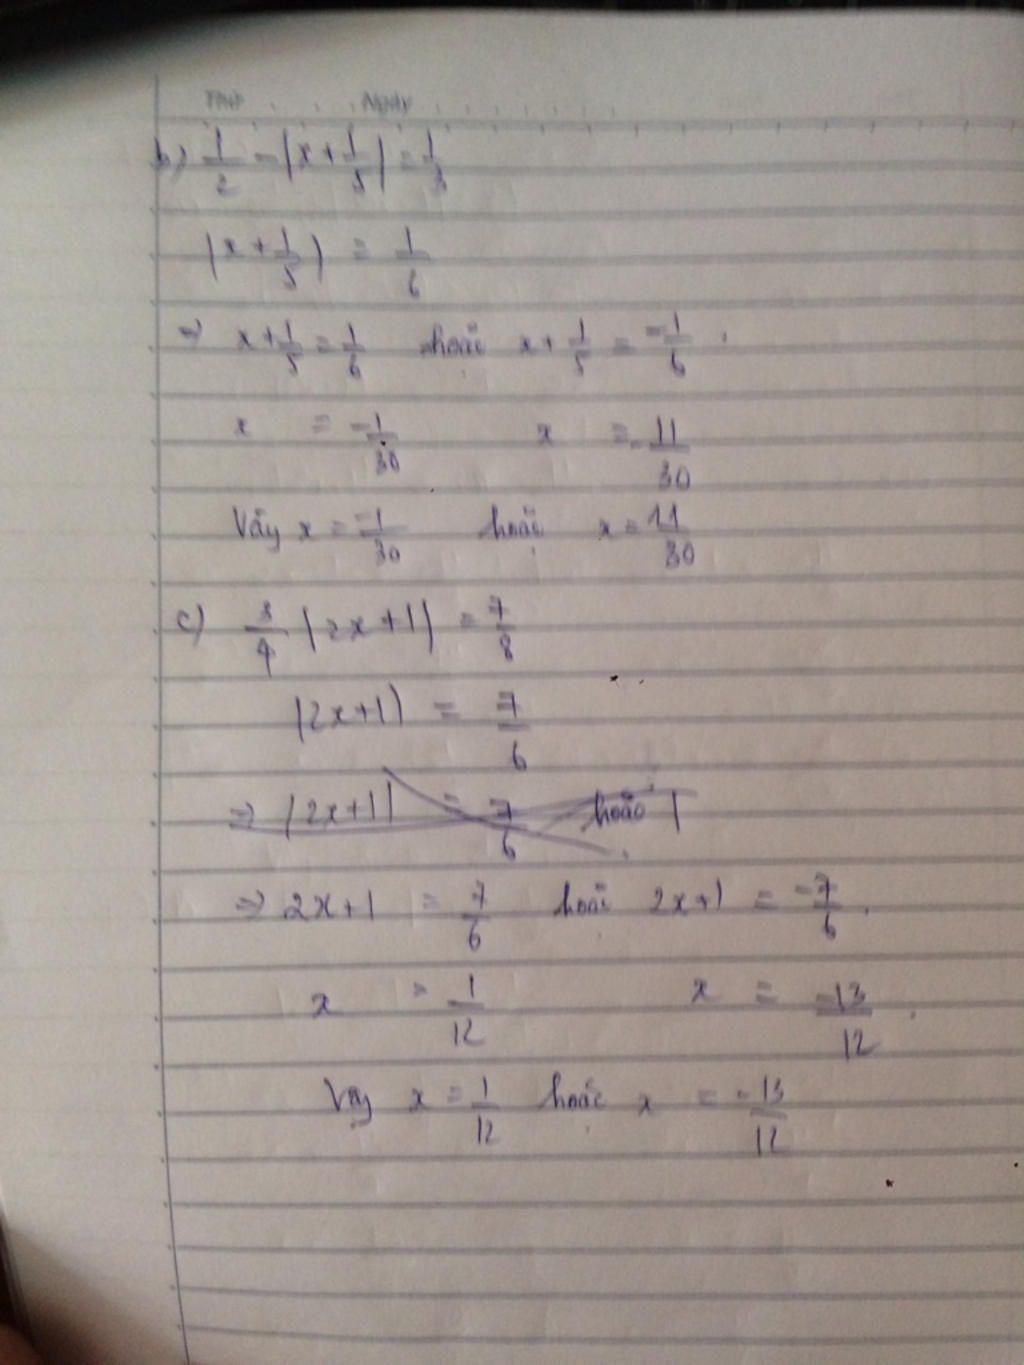 Thứ Ngày
b) 1/2 - |x + 1/5| = 1/3
|x + 1/5| = 1/6
=> x + 1/5 = 1/6 hoặc x + 1/5 = -1/6.
x = -1/30 x = -11/30
Vậy x = -1/30 hoặc x = 11/30
c) 3/4 |2x+1| = 7/8
|2x+1| = 7/6
=> |2x+1| = 7/6 hoặc |
=> 2x+1 = 7/6 hoặc 2x+1 = -7/6.
x = 1/12 x = -13/12.
Vậy x = 1/12 hoặc x = -13/12